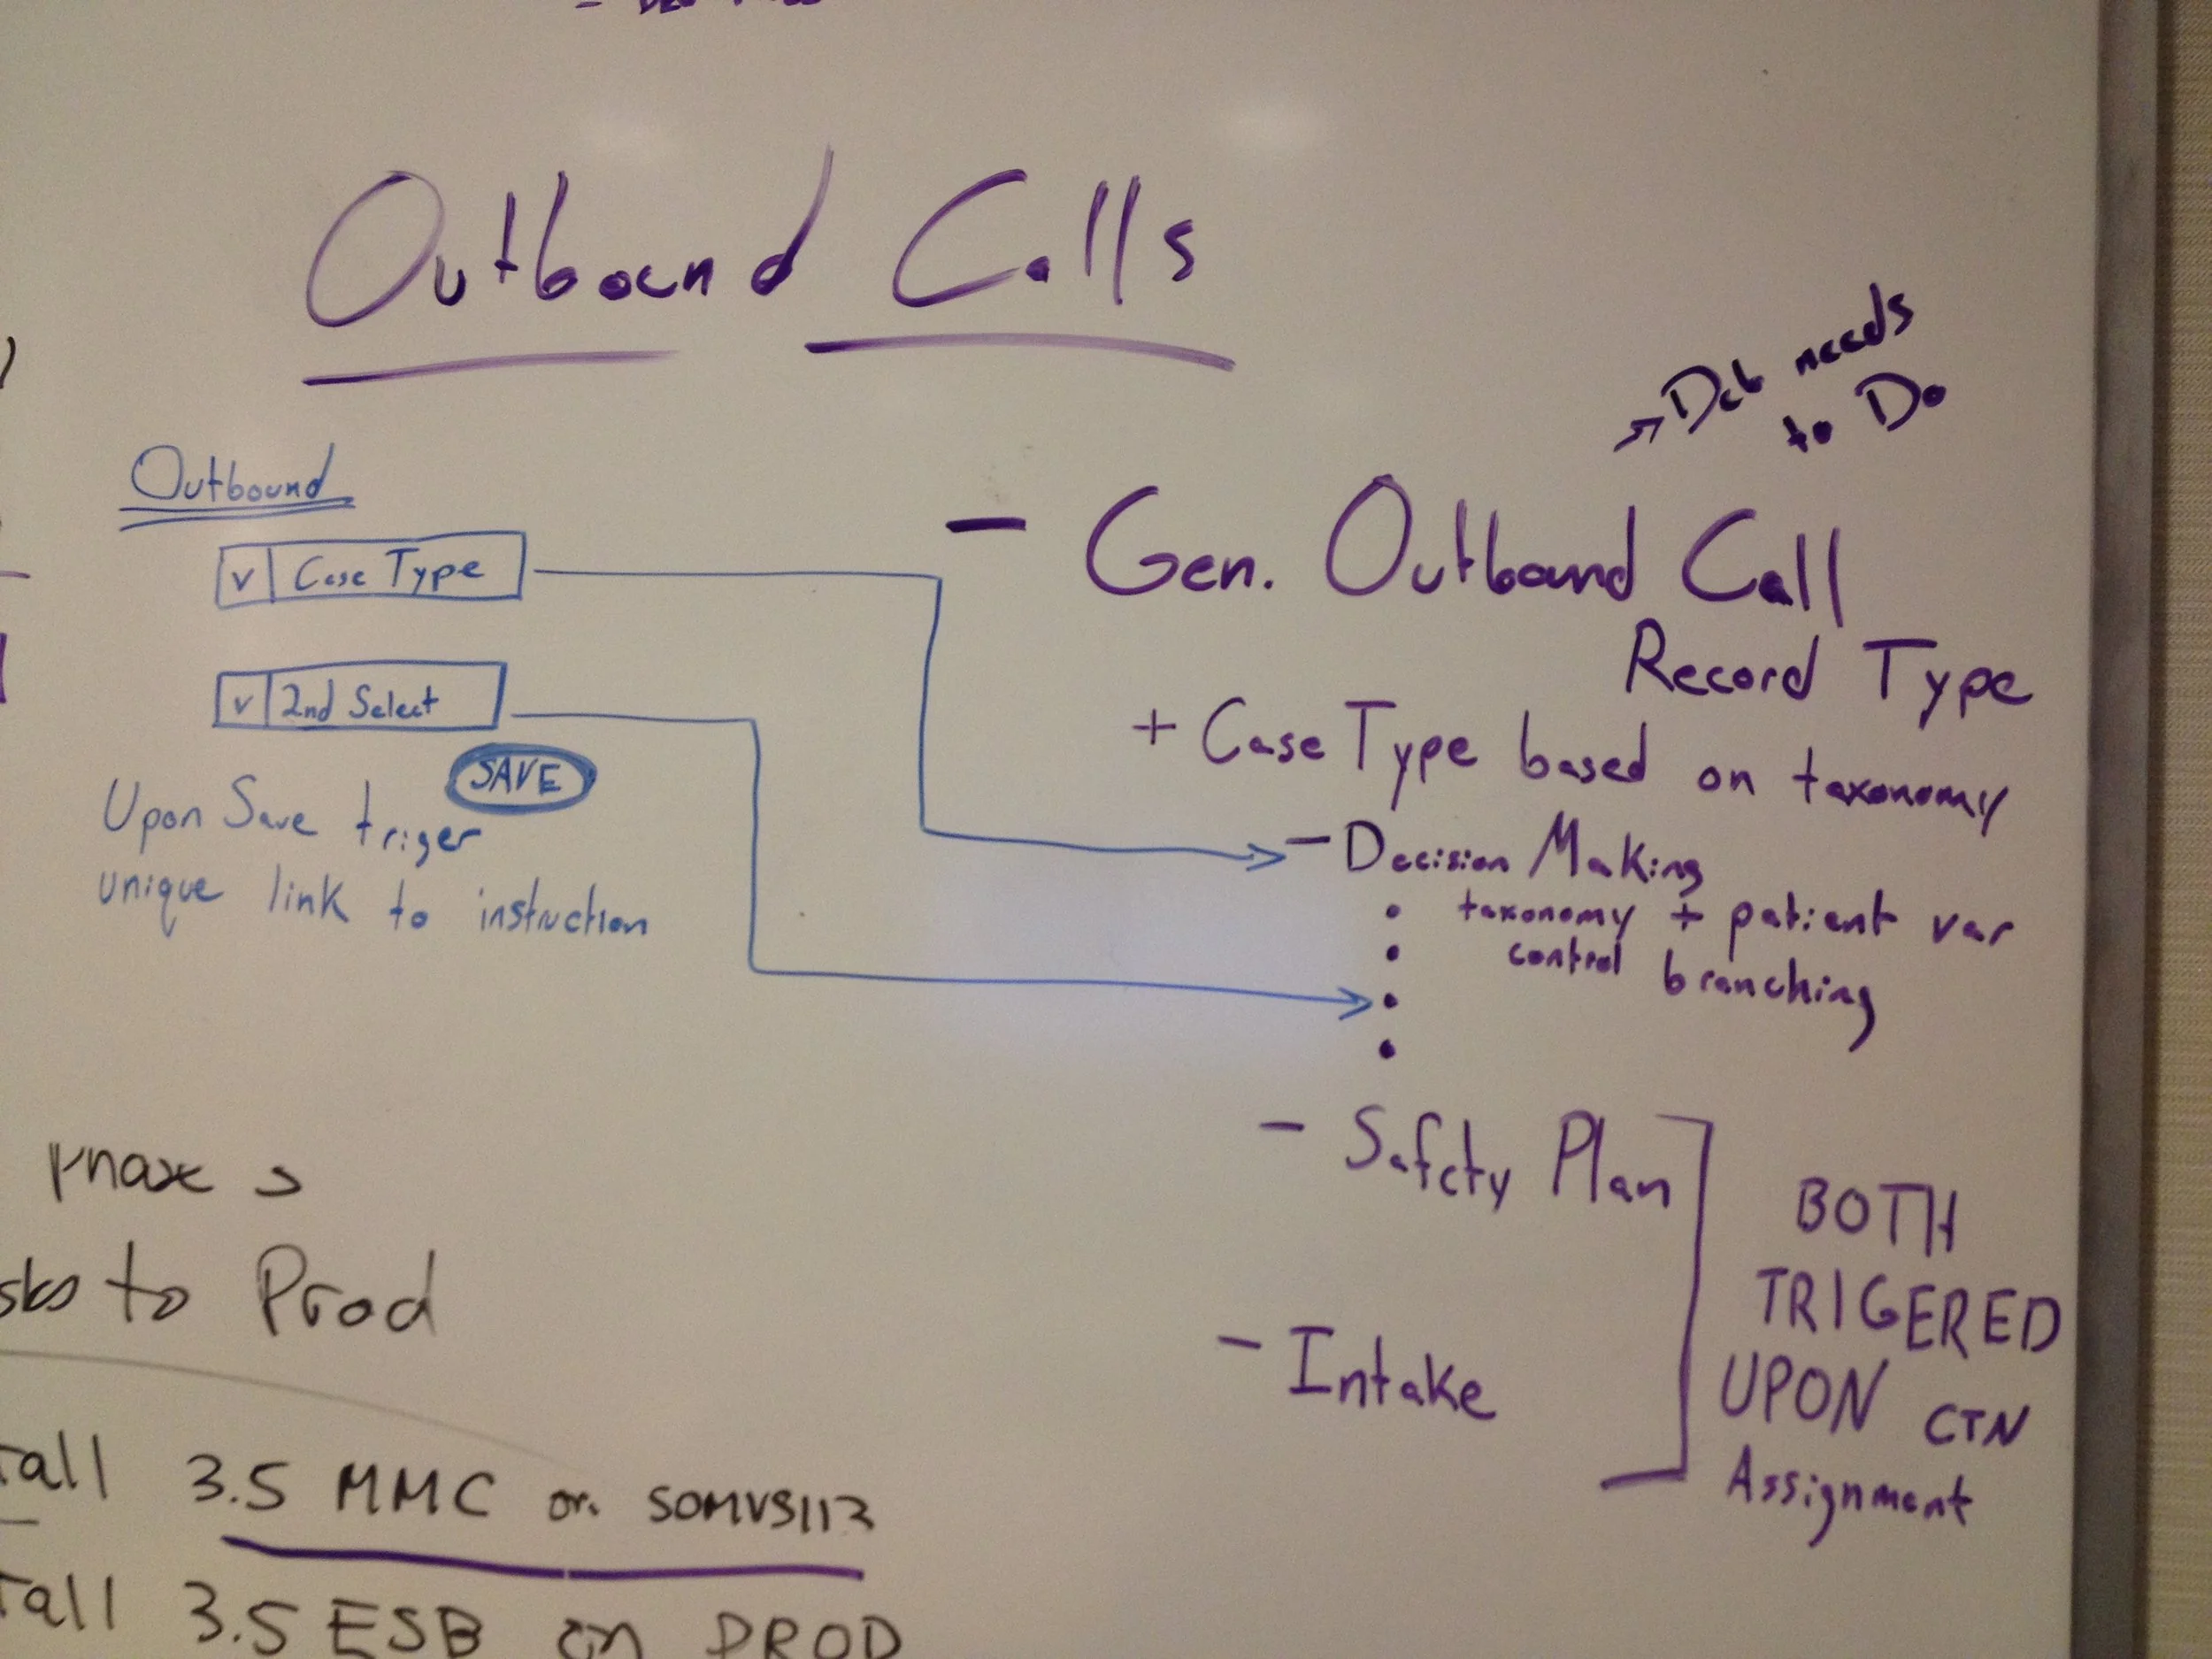 Outbound Calls
Deb needs
to Do
Outbound
v Case Type
v 2nd Select
SAVE
Upon Save triger
unique link to instruction
- Gen. Outbound Call
Record Type
+ Case Type based on taxonomy
- Decision Making
• taxonomy + patient var
• control branching
•
•
- Safety Plan
- Intake
BOTH
TRIGERED
UPON CTN
Assignment
to Prod
3.5 MMC on SOMVS112
3.5 ESB on PROD